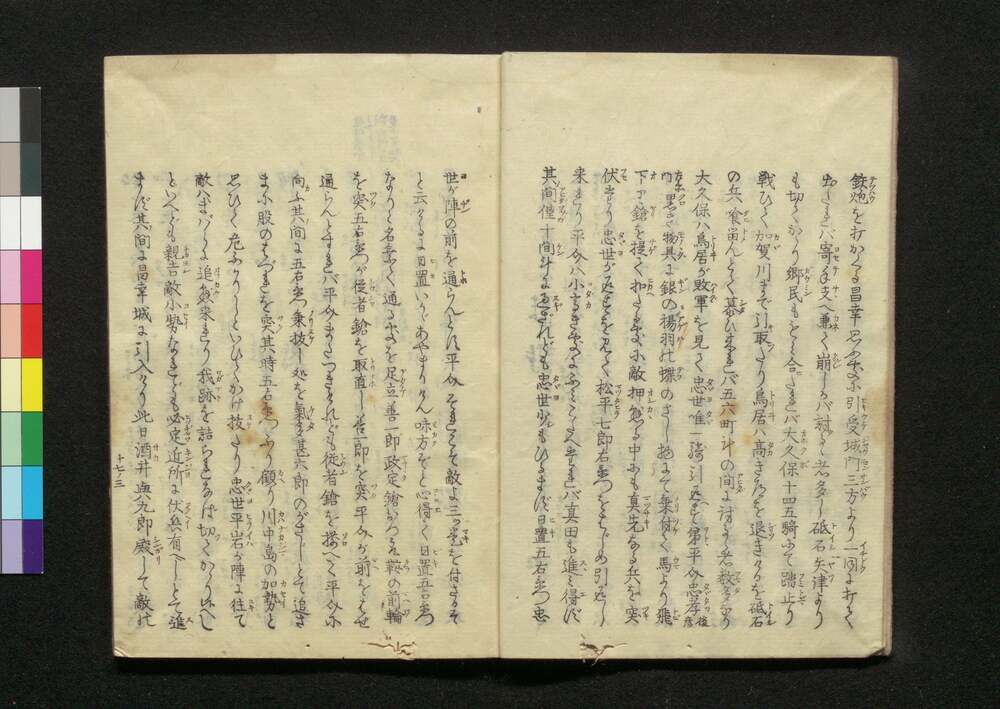 鉄炮を打かくる昌幸思ふ儘に引受城門三方より一同に打て
出ければ寄手支へ兼て崩しかバ討るゝ者多し砥石矢津より
も切てかゝり郷民もとを合すれバ大久保十四五騎にて踏止り
戦ひて加賀川まで引取たり鳥居ハ高き所を退きけるを砥石
の兵喰留んとて慕ひ来れバ五六町計の間に討るゝ者数多あり
大久保ハ鳥居が敗軍を見て忠世唯一騎引返せバ弟平介忠孝後彦
左衛門黒き物具に銀の揚羽の蝶のさし物にて乗付て馬より飛
下り鎗を提て扣たる所に敵押懸る中にも真先なる兵を突
伏たり忠世が返すを見て松平七郎右衛門をはじめ引返し
来れり平介ハ小高き所にふみこらへけれバ真田も進ミ得ず
其間僅十間計なりけれども忠世少もひるまず日置五右衛門忠
世が陣の前を通らんとす平介それこそ敵よ三つ巻を付たるぞ
と云けるに日置いらてあやまりけん味方ぞと心得て日置五右衛門
なりと名乗て通る所を足立善一郎政定鎗がつき鞍の前輪
を突五右衛門が従者鎗を取直し善一郎を突平介が前をはせ
通らんとすれバ平介またつきけれども従者鎗を揃へて平介に
向ふ其間に五右衛門乗抜し処を気多甚六郎のがさじとて追さ
まに小股のはづれを突其時五右衛門ふり顧り川中島の加勢と
思ひて危ふかりしといひてかけ抜たり忠世平岩が陣に往て
敵ハまバらに追散来れり我跡を詰られなば切てかゝり候へし
といへども親吉敵小勢なれども必定近所に伏兵有へしとて進
まず其間に昌幸城に引入けり此日酒井与九郎殿して敵の
十七ノ三